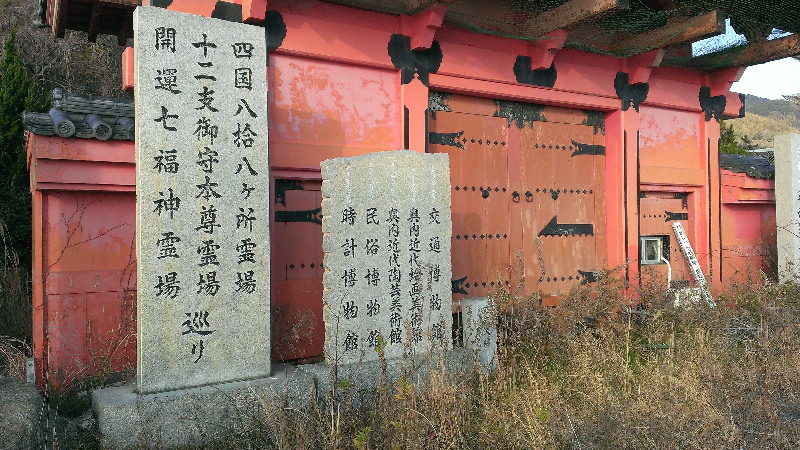 四国八拾八ヶ所霊場
十二支御守本尊霊場
開運七福神霊場
巡り
交通博物館
與内近代絵画美術館
與内近代陶芸美術館
民俗博物館
時計博物館